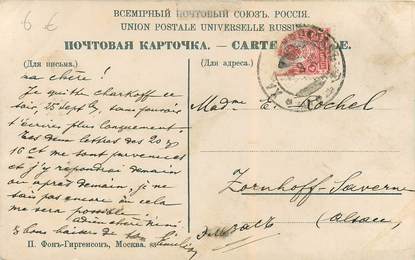 6 €
ВСЕМІРНЫЙ ПОЧТОВЫЙ СОЮЗЪ. РОССІЯ.
UNION POSTALE UNIVERSELLE RUSSIE
ПОЧТОВАЯ КАРТОЧКА. — CARTE
(Для письма.)
(Для адреса.)
ma chère!
Je quitte Charkoff ce
soir, 25 sept, sans pouvoir
t'écrire plus longuement.
Tes deux lettres des 20 &
16 ct me sont parvenues
et j'y répondrai demain
ou après demain, je ne
sais pas encore si cela
me sera possible
bons baisers de ton
Madme E. Rochel
Zornhoff-Saverne
(Alsace)
П. Фонъ-Гиргенсонъ, Москва.